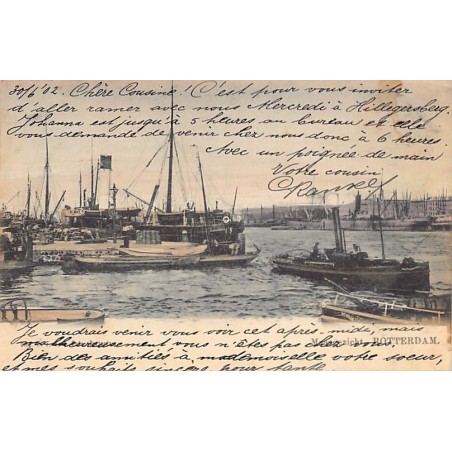 30/6 '02. Chère Cousine! C'est pour vous inviter
d'aller ramer avec nous Mercredi à Hillegersberg.
Johanna est jusqu'à 5 heures au bureau et elle
vous demande de venir chez nous donc à 6 heures.
Avec un poignée de main
Votre cousin
Je voudrais venir vous voir cet après-midi, mais
malheureusement vous n'êtes pas chez vous.
ROTTERDAM.
Bien des amitiés à mademoiselle votre soeur,
et mes souhaits sincères pour tante